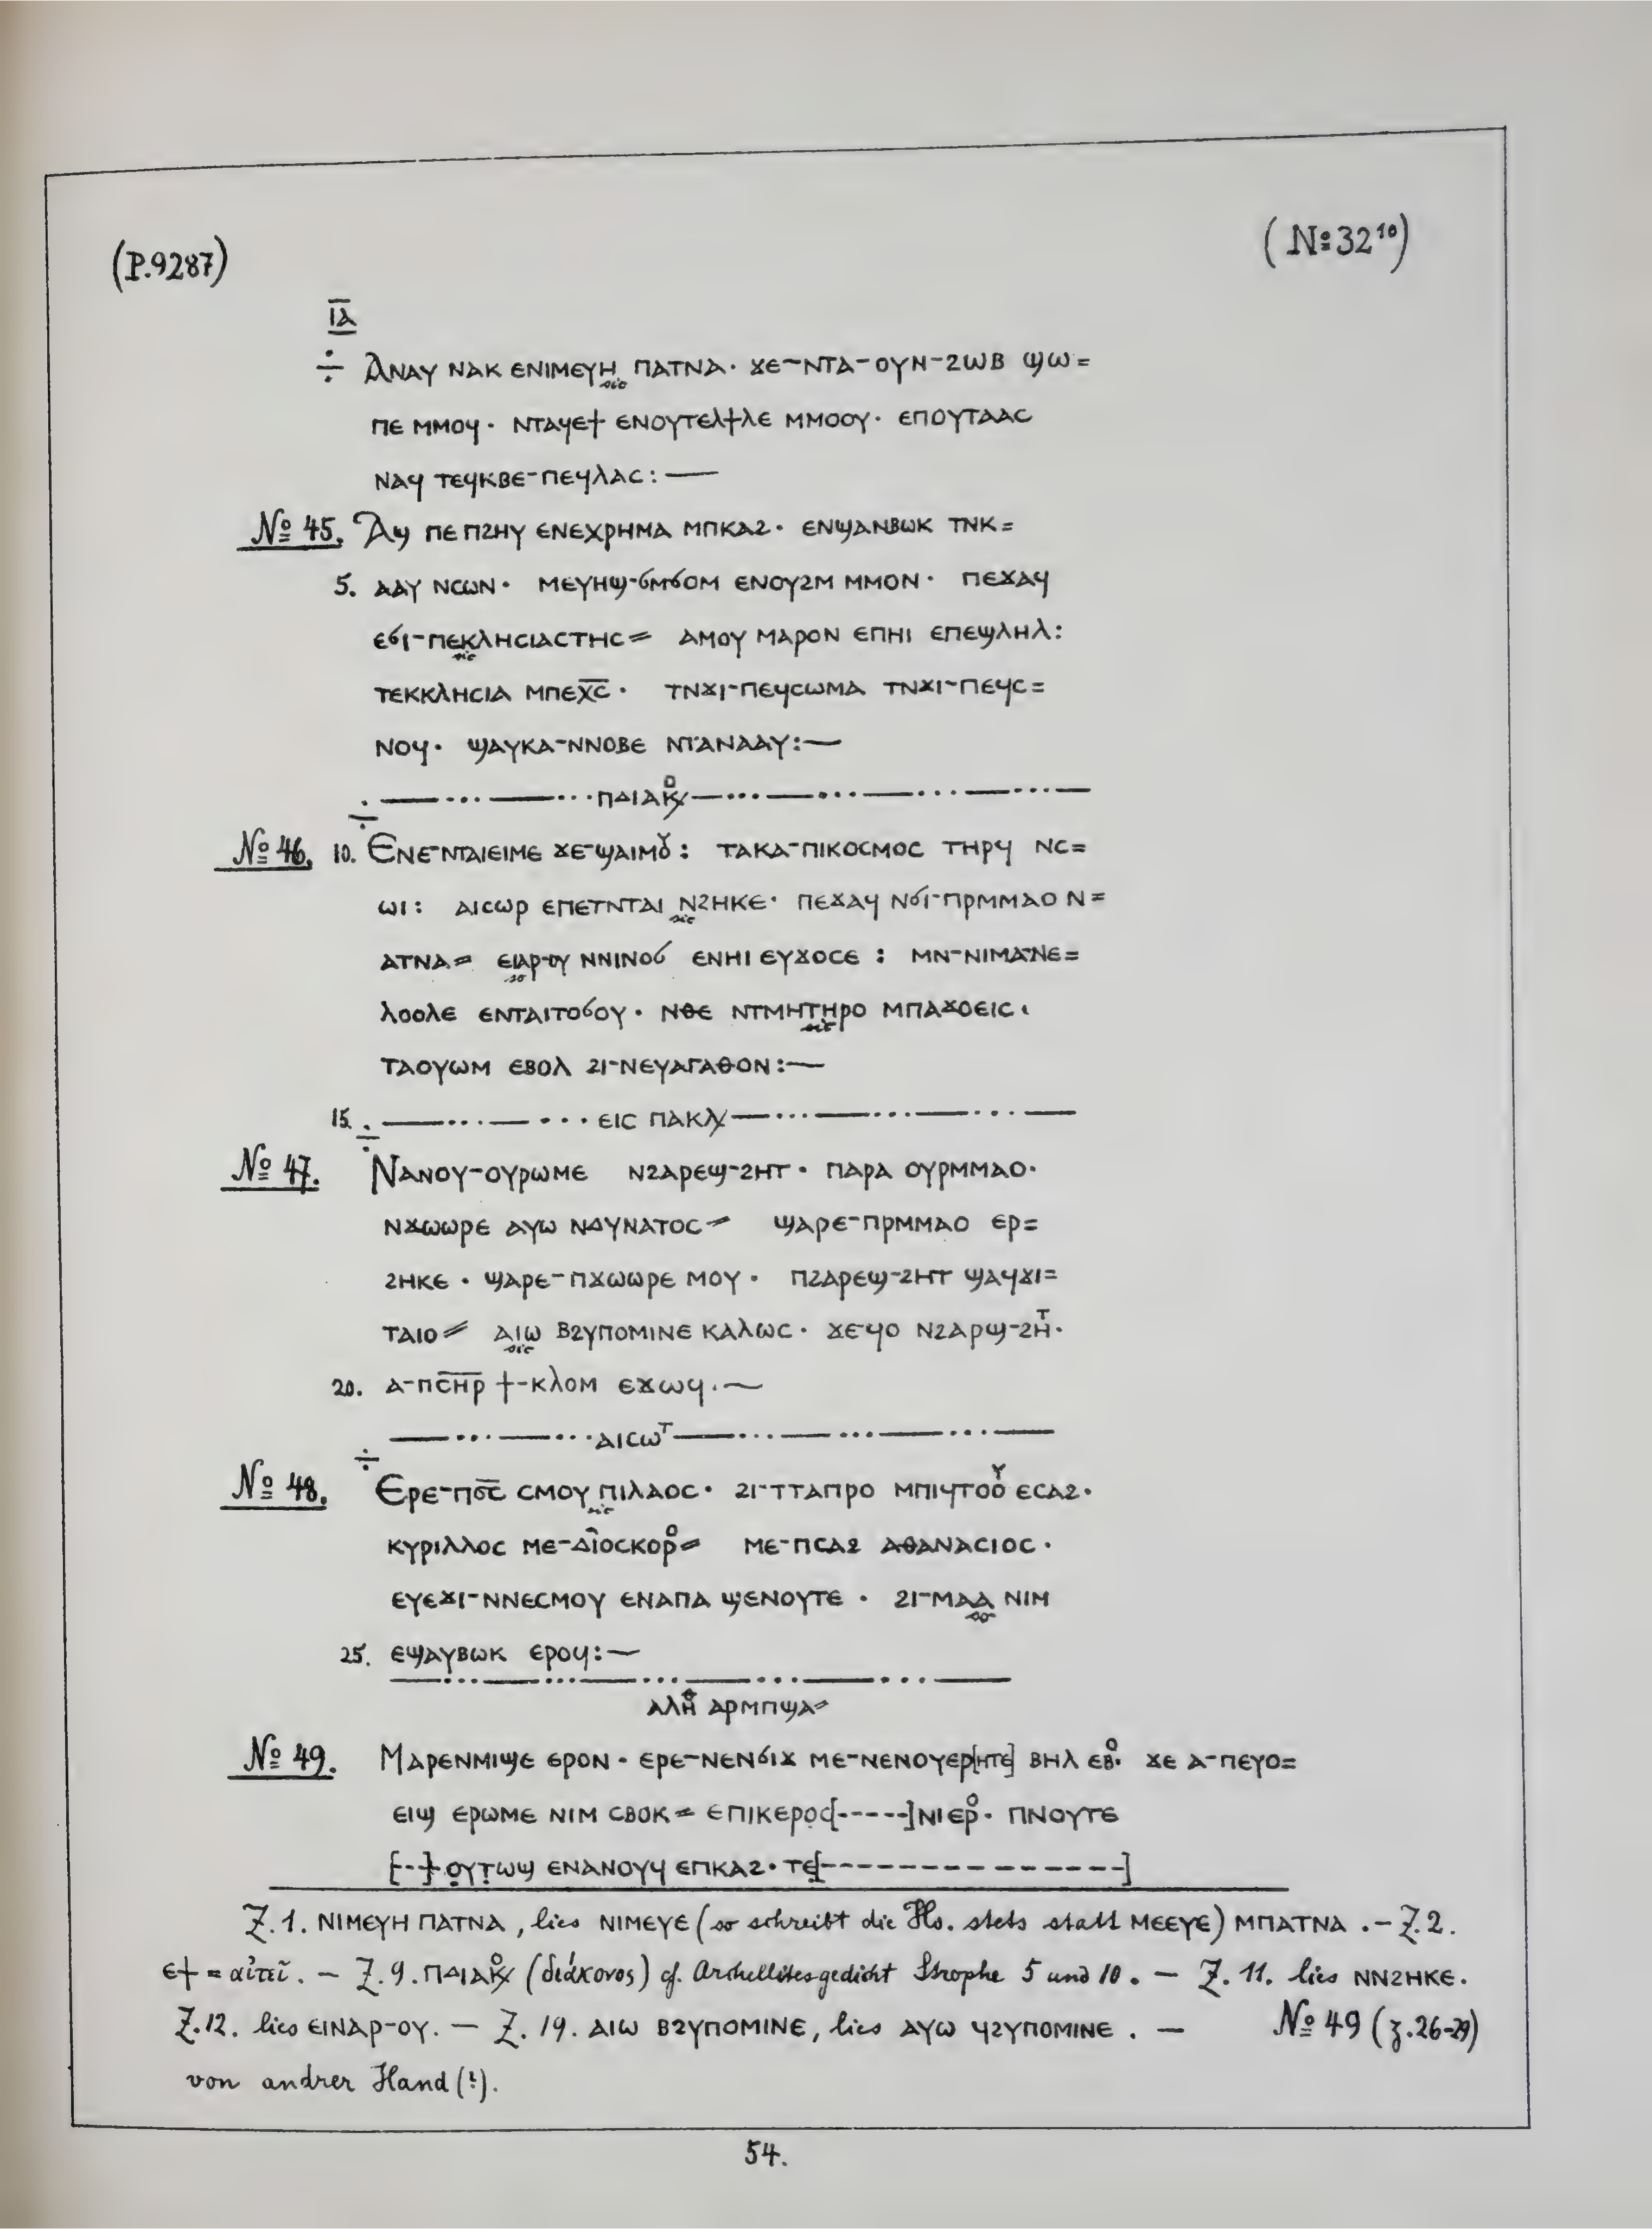 (P.9287)
(№ 32¹⁰)
ⲓ̅ⲁ̅
÷ ⲀⲚⲀⲨ ⲚⲀⲔ ⲈⲚⲒⲘⲈⲨⲎ ⲠⲀⲦⲚⲀ· ϪⲈ-ⲚⲦⲀ-ⲞⲨⲚ-ϨⲰⲂ ϢⲰ=
sic
ⲠⲈ ⲘⲘⲞϤ· ⲚⲦⲀϤⲈϮ ⲈⲚⲞⲨⲦⲈⲖϮⲖⲈ ⲘⲘⲞⲞⲨ· ⲈⲠⲞⲨⲦⲀⲀⲤ
ⲚⲀϤ ⲦⲈϤⲔⲂⲈ-ⲠⲈϤⲖⲀⲤ:—
№ 45. ⲀϢ ⲠⲈ ⲠϨⲎⲨ ⲈⲚⲈⲬⲢⲎⲘⲀ ⲘⲠⲔⲀϨ· ⲈⲚϢⲀⲚⲂⲰⲔ ⲦⲚⲔ=
5. ⲀⲀⲨ ⲚⲤⲰⲚ· ⲘⲈⲨⲎϢ-ϬⲘϬⲞⲘ ⲈⲚⲞⲨϨⲘ ⲘⲘⲞⲚ· ⲠⲈϪⲀϤ
ⲈϬⲒ-ⲠⲈⲔⲖⲎⲤⲒⲀⲤⲦⲎⲤ= ⲀⲘⲞⲨ ⲘⲀⲢⲞⲚ ⲈⲠⲎⲒ ⲈⲠⲈϢⲖⲎⲖ:
sic
ⲦⲈⲔⲔⲖⲎⲤⲒⲀ ⲘⲠⲈⲬ̅Ⲥ̅· ⲦⲚϪⲒ-ⲠⲈϤⲤⲰⲘⲀ ⲦⲚϪⲒ-ⲠⲈϤⲤ=
ⲚⲞϤ· ϢⲀϤⲔⲀ-ⲚⲚⲞⲂⲈ ⲚⲦⲀⲚⲀⲀⲨ:—
÷ —···—···ⲠⲆⲒⲀⲔ̊—···—···—···—
№ 46. 10. ⲈⲚⲈ-ⲚⲦⲀⲒⲈⲒⲘⲈ ϪⲈ-ϢⲀⲒⲘⲞⲨ: ⲦⲀⲔⲀ-ⲠⲒⲔⲞⲤⲘⲞⲤ ⲦⲎⲢϤ ⲚⲤ=
ⲰⲒ: ⲀⲒⲤⲰⲢ ⲈⲠⲈⲦⲚⲦⲀⲒ ⲚϨⲎⲔⲈ· ⲠⲈϪⲀϤ ⲚϬⲒ-ⲠⲢⲘⲘⲀⲞ Ⲛ=
sic
ⲀⲦⲚⲀ= ⲈⲒⲀⲢ-ⲞⲨ ⲚⲚⲒⲚⲞϬ ⲈⲚⲎⲒ ⲈⲨϪⲞⲤⲈ: ⲘⲚ-ⲚⲒⲘⲀ-ⲚⲈ=
so
ⲖⲞⲞⲖⲈ ⲈⲚⲦⲀⲒⲦⲞϬⲞⲨ· ⲚⲐⲈ ⲚⲦⲘⲎⲦⲎⲢⲞ ⲘⲠⲀϪⲞⲈⲒⲤ·
sic
ⲦⲀⲞⲨⲰⲘ ⲈⲂⲞⲖ ϨⲒ-ⲚⲈⲨⲀⲄⲀⲐⲞⲚ:—
15. ÷ —···—···ⲈⲒⲤ ⲠⲀⲔⲖ—···—···—···—
№ 47. ⲚⲀⲚⲞⲨ-ⲞⲨⲢⲰⲘⲈ ⲚϨⲀⲢⲈϢ-ϨⲎⲦ· ⲠⲀⲢⲀ ⲞⲨⲢⲘⲘⲀⲞ·
ⲚϪⲰⲰⲢⲈ ⲀⲨⲰ ⲚⲆⲨⲚⲀⲦⲞⲤ= ϢⲀⲢⲈ-ⲠⲢⲘⲘⲀⲞ ⲈⲢ=
ϨⲎⲔⲈ· ϢⲀⲢⲈ-ⲠϪⲰⲰⲢⲈ ⲘⲞⲨ· ⲠϨⲀⲢⲈϢ-ϨⲎⲦ ϢⲀϤϪⲒ=
ⲦⲀⲒⲞ= ⲀⲒⲰ ⲂϨⲨⲠⲞⲘⲒⲚⲈ ⲔⲀⲖⲰⲤ· ϪⲈ-ϤⲞ ⲚϨⲀⲢϢ-ϨⲎⲦ·
sic
20. Ⲁ-ⲠⲤ̅Ⲏ̅Ⲣ̅ Ϯ-ⲔⲖⲞⲘ ⲈϪⲰϤ.—
÷ —···—···ⲀⲒⲤⲰᵀ—···—···—···—
№ 48. ⲈⲢⲈ-ⲠϬ̅Ⲥ̅ ⲤⲘⲞⲨ ⲠⲒⲖⲀⲞⲤ· ϨⲒ-ⲦⲦⲀⲠⲢⲞ ⲘⲠⲒϤⲦⲞⲞⲨ ⲈⲤⲀϨ·
sic
ⲔⲨⲢⲒⲖⲖⲞⲤ ⲘⲈ-ⲆⲒⲞⲤⲔⲞⲢ̊= ⲘⲈ-ⲠⲤⲀϨ ⲀⲐⲀⲚⲀⲤⲒⲞⲤ·
ⲈⲨⲈϪⲒ-ⲚⲚⲈⲤⲘⲞⲨ ⲈⲚⲀⲠⲀ ϢⲈⲚⲞⲨⲦⲈ· ϨⲒ-ⲘⲀⲀ ⲚⲒⲘ
so
25. ⲈϢⲀⲨⲂⲰⲔ ⲈⲢⲟϤ:—
ⲀⲖⲎ̊ ⲀⲢⲘⲠϢⲀ=
№ 49. ⲘⲀⲢⲈⲚⲘⲒϢⲈ ⲈⲢⲞⲚ· ⲈⲢⲈ-ⲚⲈⲚϬⲒϪ ⲘⲈ-ⲚⲈⲚⲞⲨⲈⲢ[ⲎⲦⲈ] ⲂⲎⲖ ⲈⲂ̊· ϪⲈ Ⲁ-ⲠⲈⲨⲞ=
ⲈⲒϢ ⲈⲢⲰⲘⲈ ⲚⲒⲘ ⲤⲂⲞⲔ= ⲈⲠⲒⲔⲈⲢⲞⲤ[-----]ⲚⲒⲈⲢ̊· ⲠⲚⲞⲨⲦⲈ
[--]ⲞⲨⲦⲰϢ ⲈⲚⲀⲚⲞⲨϤ ⲈⲠⲔⲀϨ· ⲦⲈ[--------------]
Z. 1. ⲚⲒⲘⲈⲨⲎ ⲠⲀⲦⲚⲀ, lies ⲚⲒⲘⲈⲨⲈ (so schreibt die Hs. stets statt ⲘⲈⲈⲨⲈ) ⲘⲠⲀⲦⲚⲀ. – Z. 2.
ⲈϮ = αἰτεῖ. – Z. 9. ⲠⲆⲒⲀⲔ̊ (διάκονος) cf. Archellitesgedicht Strophe 5 und 10. – Z. 11. lies ⲚⲚϨⲎⲔⲈ.
Z. 12. lies ⲈⲒⲚⲀⲢ-ⲞⲨ. – Z. 19. ⲀⲒⲰ ⲂϨⲨⲠⲞⲘⲒⲚⲈ, lies ⲀⲨⲰ ϤϨⲨⲠⲞⲘⲒⲚⲈ. – № 49 (Z. 26-29)
von andrer Hand (?).
54.